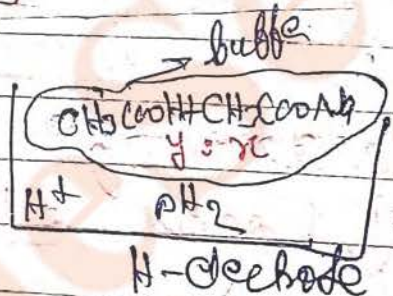 buffe
CH3COOH+CH3COONa
y : x
H+ pH2
H-electrode